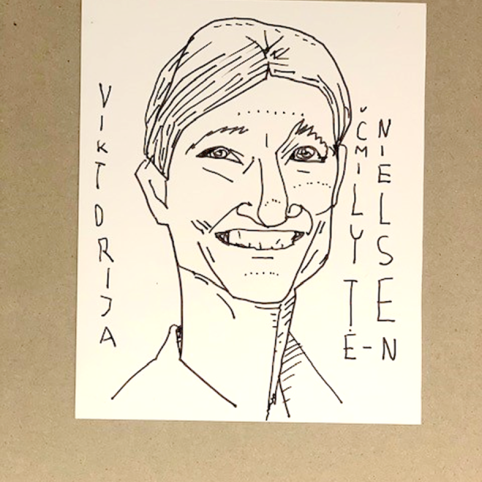 VIKTORIJA
ČMILYTĖ-
NIELSEN